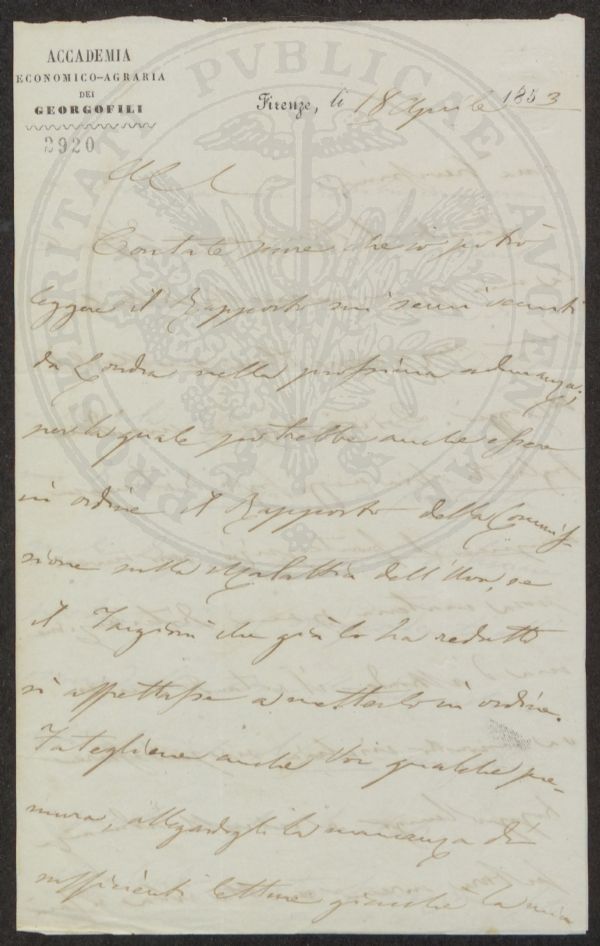 ACCADEMIA
ECONOMICO-AGRARIA
DEI
GEORGOFILI
2920
Firenze, li 18 Aprile 1853
Contate pure che io potrò
leggere il Rapporto sui semi venuti
da Londra nella prossima adunanza;
per la quale potrebbe anche essere
in ordine il Rapporto della Commis
sione sulla Malattia dell'Uva, se
il Targioni che già lo ha redatto
si affrettasse a metterlo in ordine.
Fategliene anche Voi qualche pre-
mura, allegandogli la mancanza di
sufficienti letture giacche la mia
PROSPERITATI PVBLICAE AVGENDAE